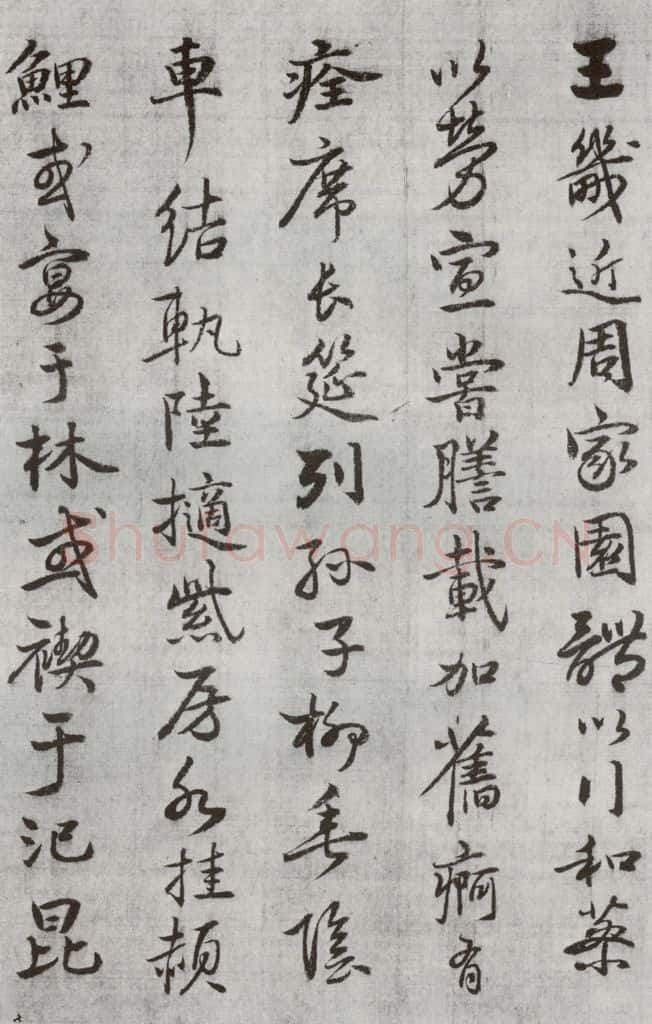 王畿近周家園體以行和藥
以勞宣嘗膳載加舊痾有
痊席長筵列孫子柳垂陰
車結軌陸擿紫房水挂赬
鯉或宴于林或禊于汜昆
Shufawang.CN